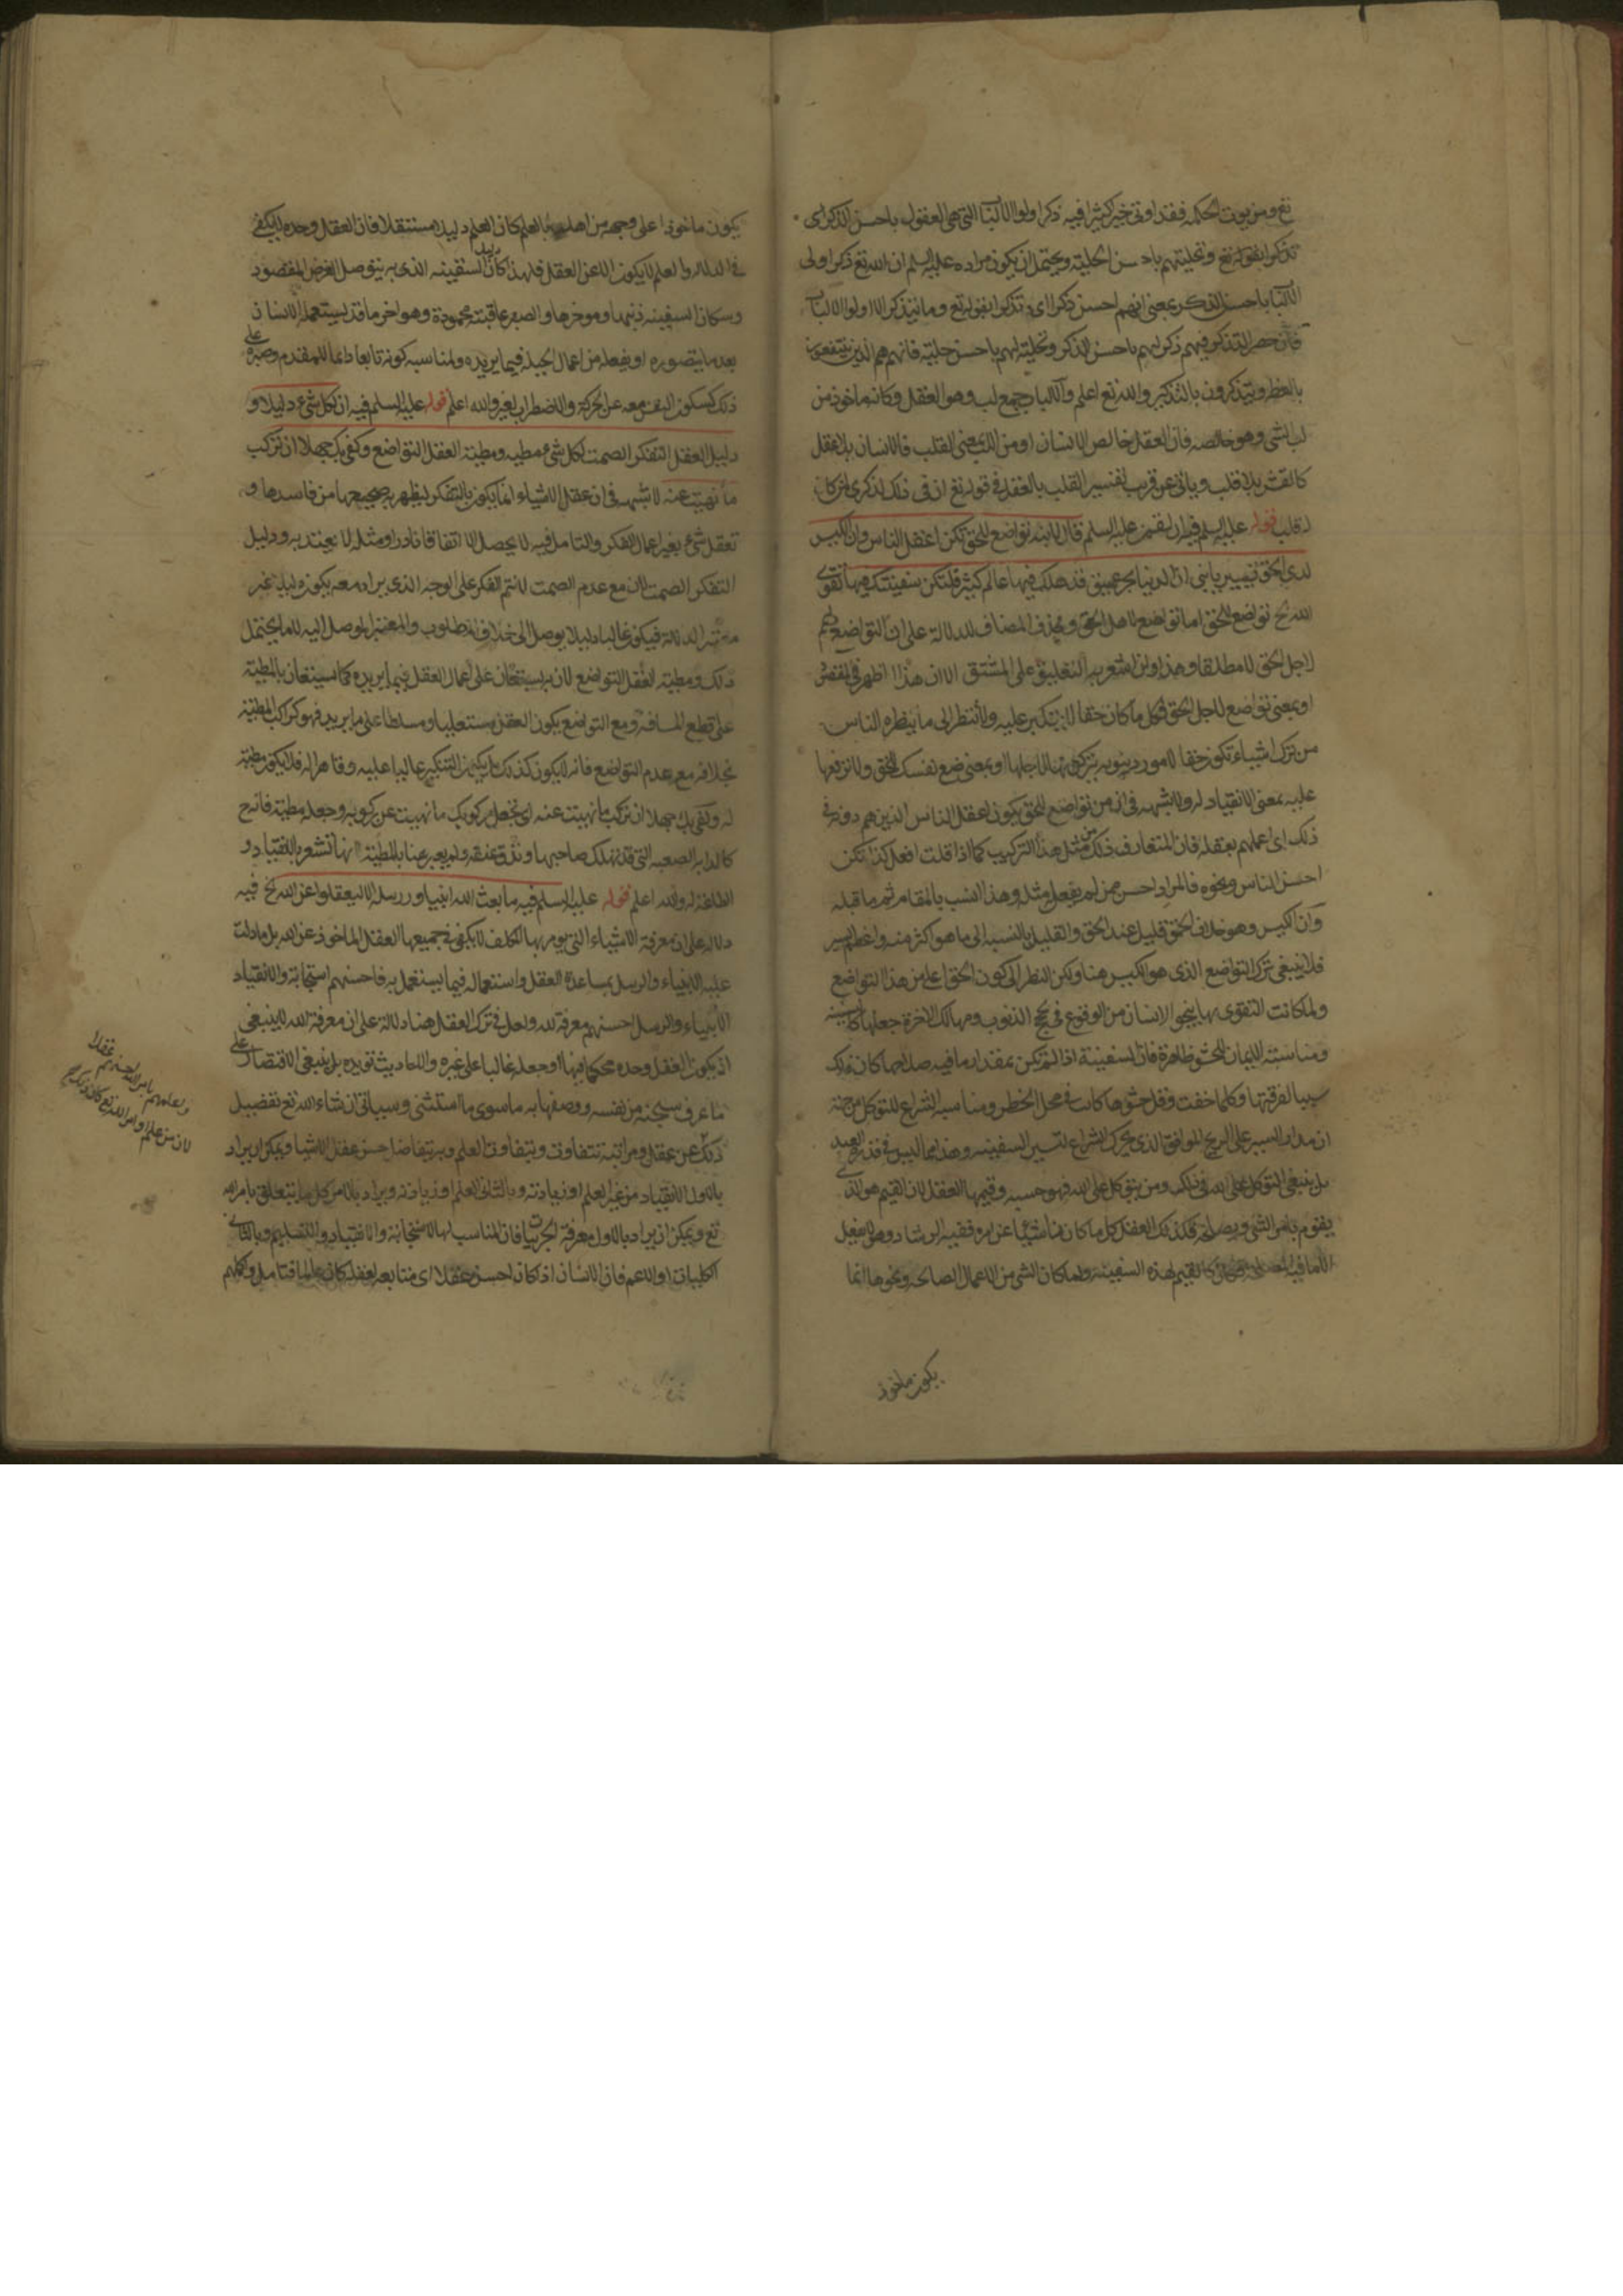 تع ومن يوت الحكمة فقد اوتى خيرا كثيرا فيه ذكر اولوا الالباب التى هى العقول باحسن الذكر اى
تذكر ابقوله تع وتحليتهم باحسن الحلية ويحتمل ان يكون مراده عليه السلم ان الله تع ذكر اولى
الالباب باحسن الذكر بمعنى انهم احسن ذكرا اى تذكرا بقوله تع وما يتذكر الا اولوا الالباب
فان حصر التذكر فيهم ذكر لهم باحسن الذكر وتحلية لهم باحسن حلية فانهم هم الذين ينتفعون
بالعظة ويتذكرون بالتذكير والله تع اعلم والالباب جمع لب وهو العقل وكانه ماخوذ من
لب الشى وهو خالصه فان العقل خالص الانسان او من اللب بمعنى القلب فالانسان بلا عقل
كالقشر بلا قلب وياتى عن قريب تفسير القلب بالعقل فى قوله تع ان فى ذلك لذكرى لمن كان
له قلب قوله عليه السلم فيه ان لقمن عليه السلم قال لابنه تواضع للحق تكن اعقل الناس وان الكيس
لدى الحق يسير يا بنى ان الدنيا بحر عميق قد هلك فيها عالم كثير فلتكن سفينتك فيها تقوى
الله تع تواضع للحق اما تواضع لاهل الحق وحذف المضاف للدلالة على ان التواضع لهم
لاجل الحق لا مطلقا وهذا وان اشعر به التعليق على المشتق الا ان هذا اظهر فى المقصود
او بمعنى تواضع لاجل الحق فى كل ما كان حقا لا يتكبر عليه ولا تنظر الى ما ينظره الناس
من ترك اشياء تكون حقا لامور دنيوية يتركونها لاجلها او بمعنى ضع نفسك للحق ولا ترفعها
عليه بمعنى الانقياد له ولا شبهة فى ان من تواضع للحق يكون اعقل الناس الذين هم دونه فى
ذلك اى اعملهم بعقله فان المتعارف من مثل هذا التركيب كما اذا قلت افعل كذا تكن
احسن الناس ونحوه فالمراد احسن ممن لم يفعل مثله وهذا انسب بالمقام ثم ما قبله
وان الكيس وهو خلاف الحمق قليل عند الحق والقليل بالنسبة الى ما هو اكثر منه واعظم يسير
فلا ينبغى ترك التواضع الذى هو الكيس هنا ولكن النظر الى كون الحق اعلى من هذا التواضع
ولما كانت التقوى بها ينجو الانسان من الوقوع فى لجج الذنوب ومهالك الاخرة جعلها كالسفينة
ومناسبة الايمان للحشو ظاهرة فان السفينة اذا لم تكن بمقدار ما فيه صلاحها كان ذلك
سببا لغرقها وكلما خفت وقل حشوها كانت فى محل الخطر ومناسبة الشراع للتوكل من جهة
ان مدار السير على الريح الموافق الذى يحرك الشراع لتسير السفينة وهذا مما ليس فى قدرة العبد
بل ينبغى التوكل على الله فى ذلك ومن يتوكل على الله فهو حسبه وقيمها العقل لان القيم هو الذى
يقوم بامر الشى ويصلحه فكذلك العقل
القيم لهذه السفينة ولما كان الشى من الاعمال الصالحة ونحوها انما
يكون ماخوذ
يكون ماخوذا على وجهه من اهله بالعلم كان العلم دليله مستقلا فان العقل وحده لا يكفى
فى الدلالة والعلم لا يكون الا عن العقل فلهذا كان دليل السفينة الذى به يتوصل الغرض المقصود
وسكان السفينة ذنبها وموخرها والصبر عاقبته محمودة وهو اخر ما قد يستعمله الانسان
بعد ما يتصوره او يفعله من اعمال الحيلة فيما يريده ولمناسبة كونه تابعا دائما للمقدم وصبره على
ذلك كسكون النفس معه عن الحركة والاضطراب لغيره والله اعلم قوله عليه السلم فيه ان لكل شىء دليلا و
دليل العقل التفكر الصمت لكل شىء مطية ومطية العقل التواضع وكفى بك جهلا ان تركب
ما نهيت عنه لا شبهة فى ان عقل الاشياء انما يكون بالتفكر ليظهر به صحيحها من فاسدها و
تعقل شىء بغير اعمال الفكر والتامل فيه لا يحصل الا اتفاقا نادرا ومثله لا يعتد به ودليل
التفكر الصمت لان مع عدم الصمت لا يتم الفكر على الوجه الذى يراد معه يكون دليله غير
معتبر الدلالة فيكون غالبا دليلا يوصل الى خلاف المطلوب والمعتبر الموصل اليه لا ما يحتمل
ذلك ومطية العقل التواضع لان به يستعان على اعمال العقل فيما يريده كما يستعان بالمطية
على قطع المسافة ومع التواضع يكون العقل مستعليا ومسلطا على ما يريد فهو كراكب المطية
بخلافه مع عدم التواضع فانه لا يكون كذلك بل يكون التكبر غالبا عليه وقاهرا له فلا يكون مطية
له وكفى بك جهلا ان تركب ما نهيت عنه اى تجعل مركوبك ما نهيت عن ركوبه وجعله مطية فانه ح
كالدابة الصعبة التى قد تهلك صاحبها وتدق عنقه ولم يعبر عنها بالمطية لانها تشعر بالانقياد و
الطاعة له والله اعلم قوله عليه السلم فيه ما بعث الله انبياءه ورسله الا ليعقلوا عن الله تع فيه
دلالة على ان معرفة الاشياء التى يومر بها المكلف لا يكفى فى جميعها العقل الا الماخوذ عن الله بل ما دلت
عليه الانبياء والرسل بمساعدة العقل واستعماله فيما يستعمل به فاحسنهم استجابة والانقياد
الانبياء والرسل احسنهم معرفة لله ولعل فى ترك العقل هنا دلالة على ان معرفة الله لا ينبغى
ان يكون العقل وحده محكما فيها او جعله غالبا على غيره والاحاديث تويده بل ينبغى الاقتصار على
ما عرف سبحنه من نفسه ووصفها به ما سوى ما استثنى وسياتى ان شاء الله تع تفصيل
ذلك عن عقل ومراتبه تتفاوت ويتفاوت العلم وبه يتفاضل حسن عقل الاشيا ويمكن ان يراد
بالاول الانقياد من غير العلم او زيادته وبالثانى العلم او زيادته ويراد بالامر كل ما يتعلق بامر الله
تع ويمكن ان يراد بالاول معرفة الجزئيات فان المناسب لها الاستجابة والانقياد والتسليم وبالثانى
الكليات او الاعم فان الانسان اذا كان احسن عقلا اى متابعة لعقله كان عالما فتامل وكلهم
واعلمهم بامر الله احسنهم عقلا
لان من علم اوامر الله تع كان